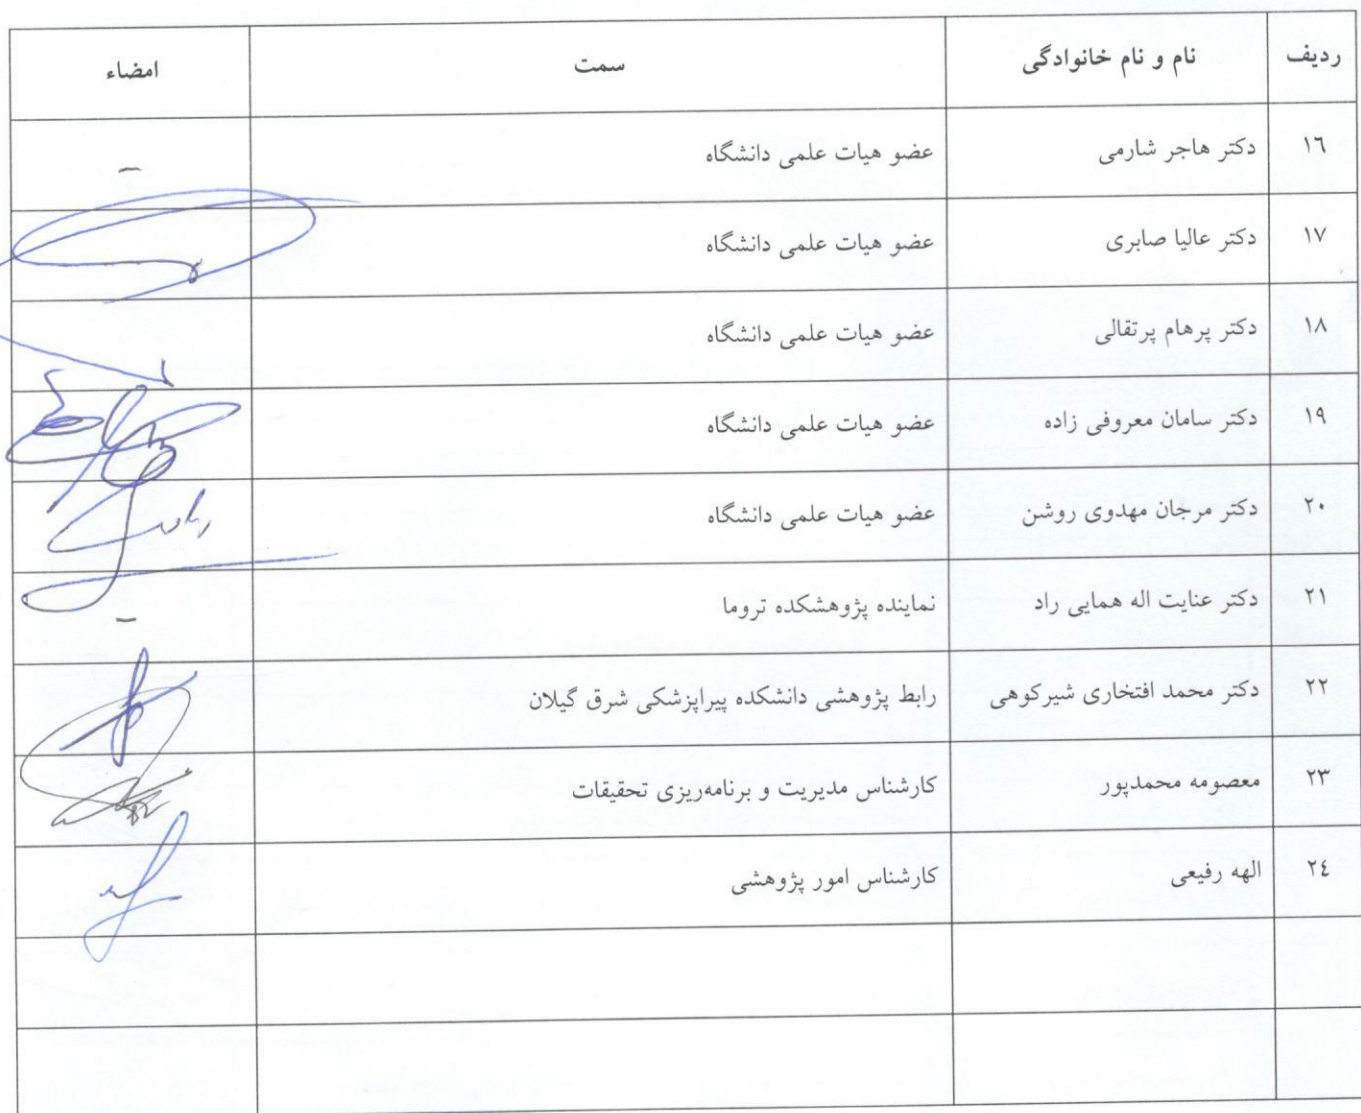 ردیف نام و نام خانوادگی سمت امضاء
١٦ دکتر هاجر شارمی عضو هیات علمی دانشگاه -
١٧ دکتر عالیا صابری عضو هیات علمی دانشگاه
١٨ دکتر پرهام پرتقالی عضو هیات علمی دانشگاه
١٩ دکتر سامان معروفی زاده عضو هیات علمی دانشگاه
٢٠ دکتر مرجان مهدوی روشن عضو هیات علمی دانشگاه
٢١ دکتر عنایت اله همایی راد نماینده پژوهشکده تروما -
٢٢ دکتر محمد افتخاری شیرکوهی رابط پژوهشی دانشکده پیراپزشکی شرق گیلان
٢٣ معصومه محمدپور کارشناس مدیریت و برنامه‌ریزی تحقیقات
٢٤ الهه رفیعی کارشناس امور پژوهشی